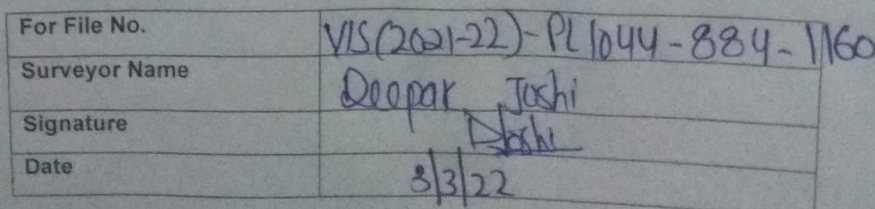 For File No. VIS(2021-22)-PL1044-884-1160
Surveyor Name Deepak Joshi
Signature DJoshi
Date 3/3/22